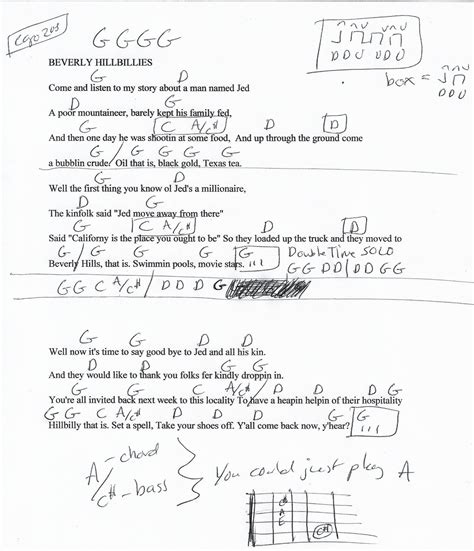 Capo 2nd
G G G G
D D U U D U
box =
D D U
BEVERLY HILLBILLIES
G D
Come and listen to my story about a man named Jed
D G
A poor mountaineer, barely kept his family fed,
G C A/C# D D
And then one day he was shootin at some food, And up through the ground come
G / G G G G
a bubblin crude/ Oil that is, black gold, Texas tea.
G D
Well the first thing you know ol Jed's a millionaire,
D G
The kinfolk said "Jed move away from there"
G C A/C# D D
Said "Californy is the place you ought to be" So they loaded up the truck and they moved to
G / G G G G Double Time SOLO
Beverly Hills, that is. Swimmin pools, movie stars. G G D D | D D G G
G G C A/C# / D D D G
G G D D
Well now it's time to say good bye to Jed and all his kin.
D D G G
And they would like to thank you folks fer kindly droppin in.
G G C A/C# / D D G
You're all invited back next week to this locality To have a heapin helpin of their hospitality
G G C A/C# D D G G
Hillbilly that is. Set a spell, Take your shoes off. Y'all come back now, y'hear?
A - chord
/C# - bass
You could just play A
C#
A
E
C#